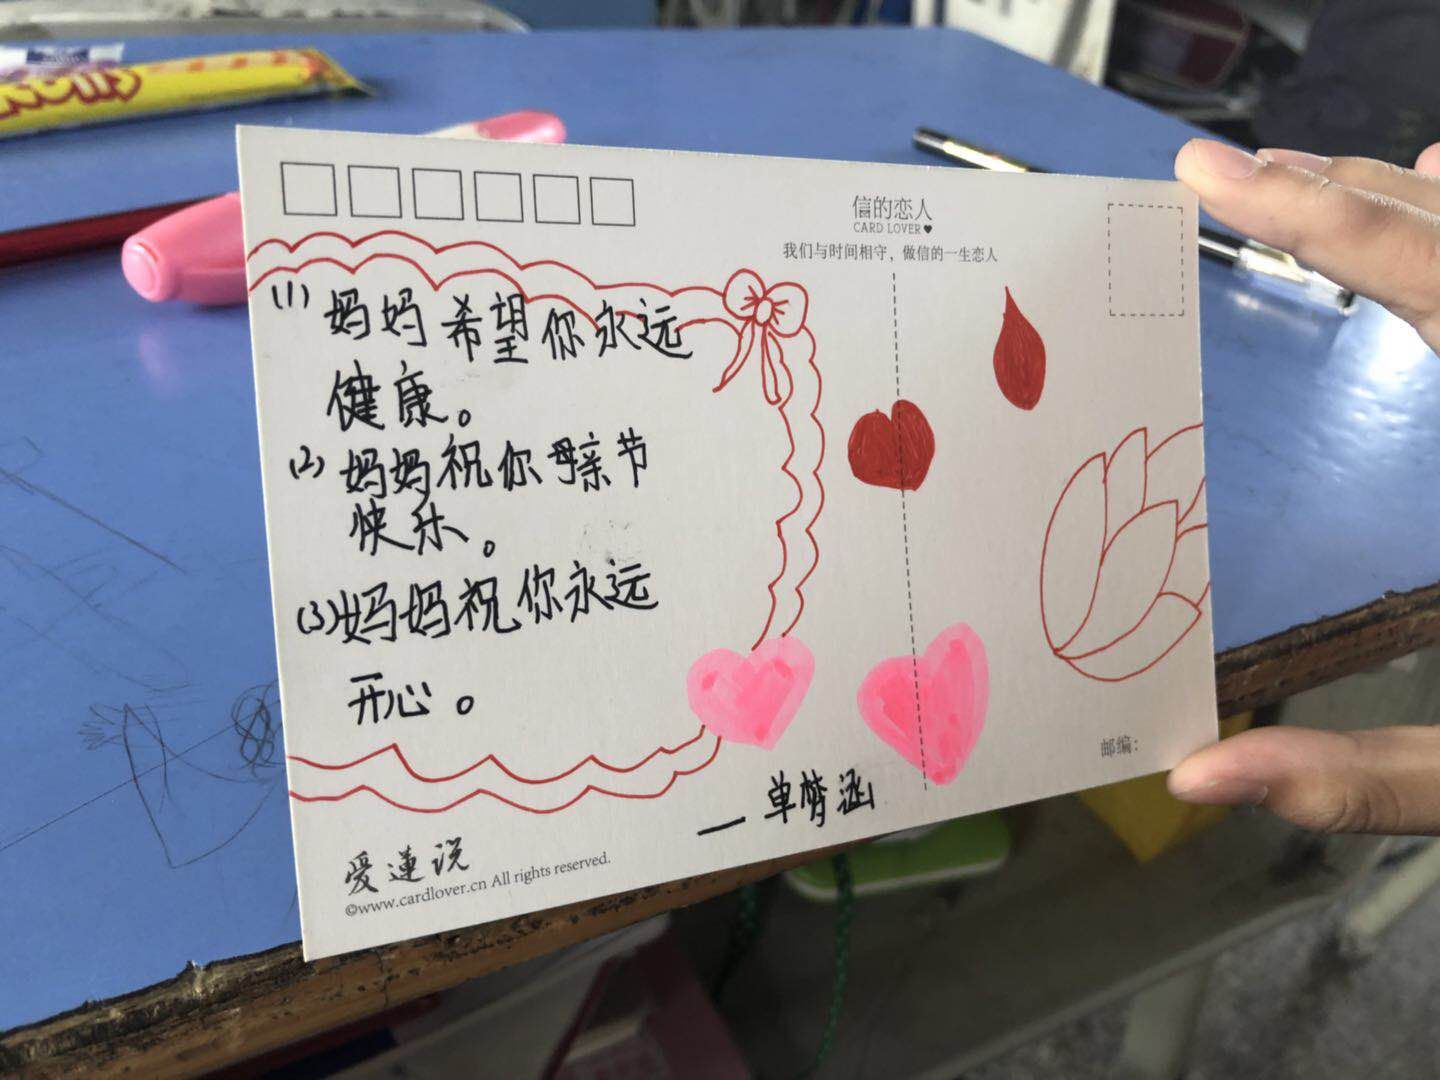 信的恋人
CARD LOVER♥
我们与时间相守，做信的一生恋人
(1)妈妈希望你永远
健康。
(2)妈妈祝你母亲节
快乐。
(3)妈妈祝你永远
开心。
—单梦涵
邮编：
爱蓮说
©www.cardlover.cn All rights reserved.